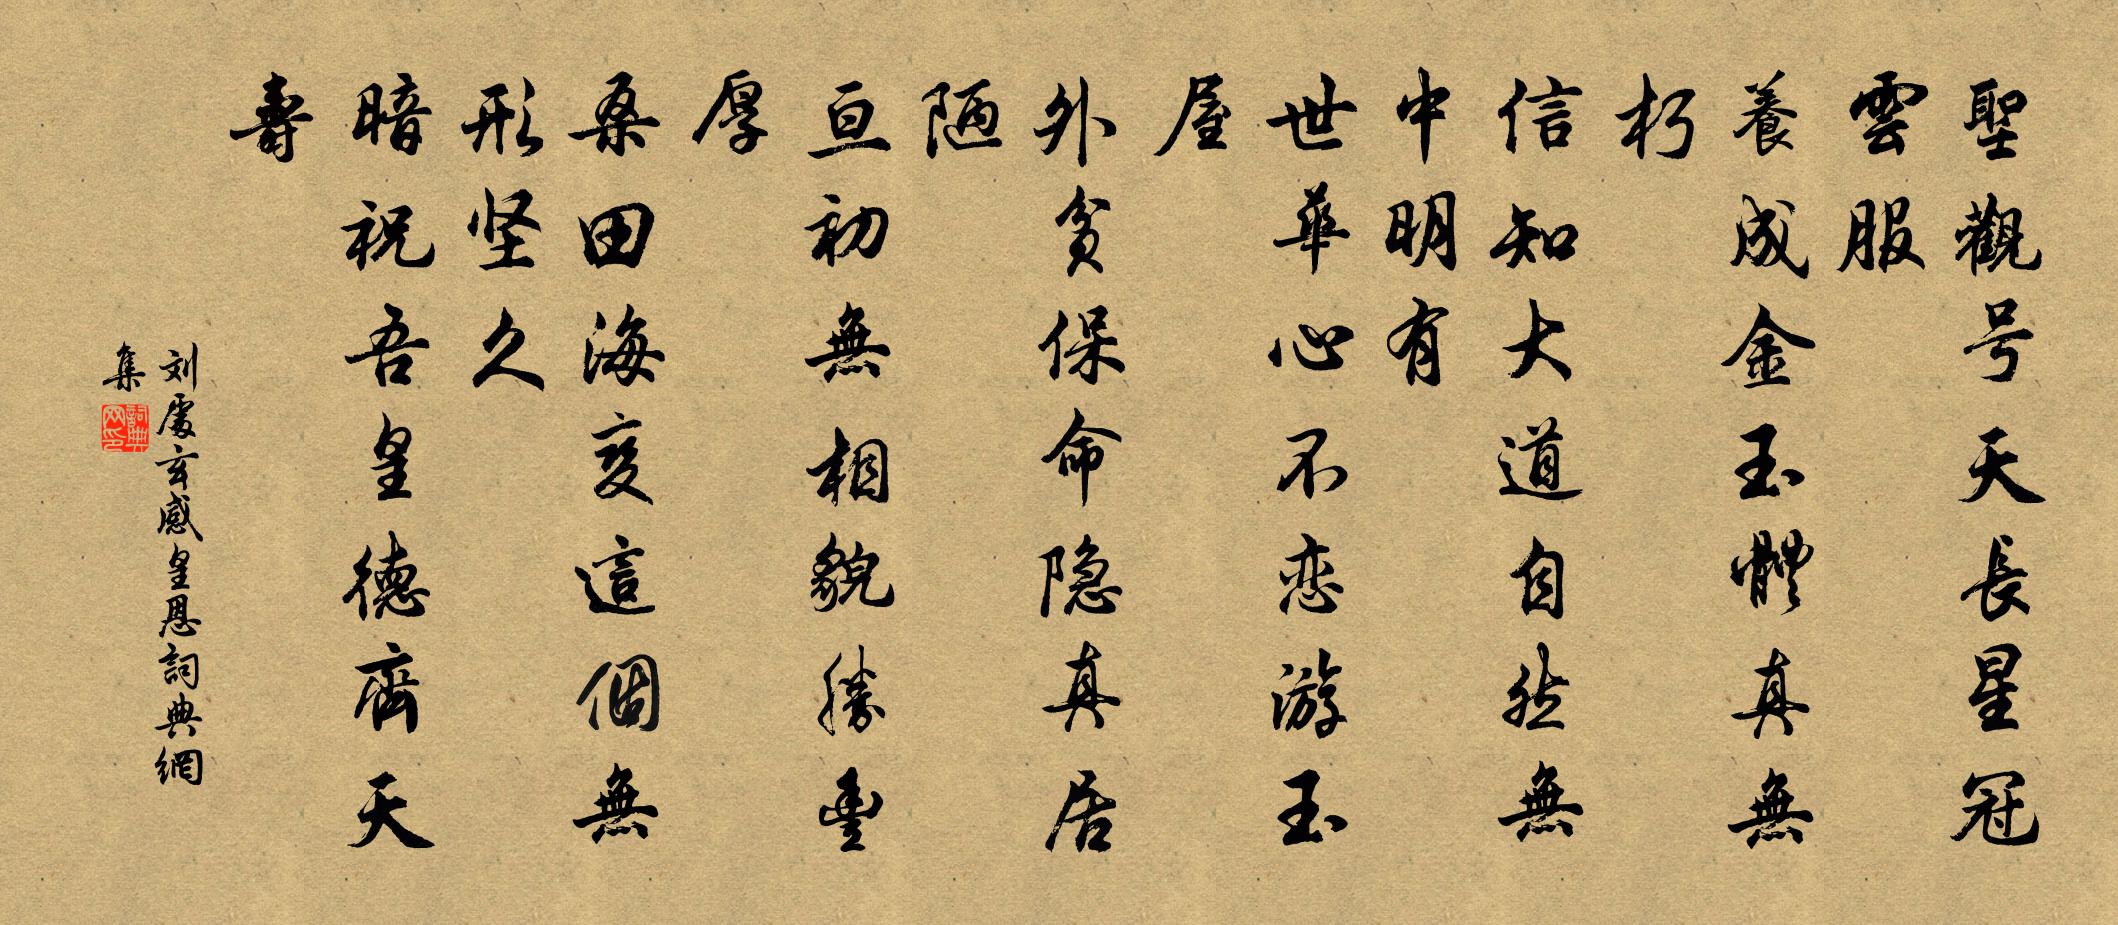 聖觀号天長星冠
雲服
養成金玉體真無
朽
信知大道自然無
中明有
世華心不恋游玉
屋
外貧保命隐真居
陋
亘初無相貌勝豊
厚
桑田海変這個無
形坚久
暗祝吾皇德齊天
壽
刘處玄感皇恩詞典網
集
詞典
网印